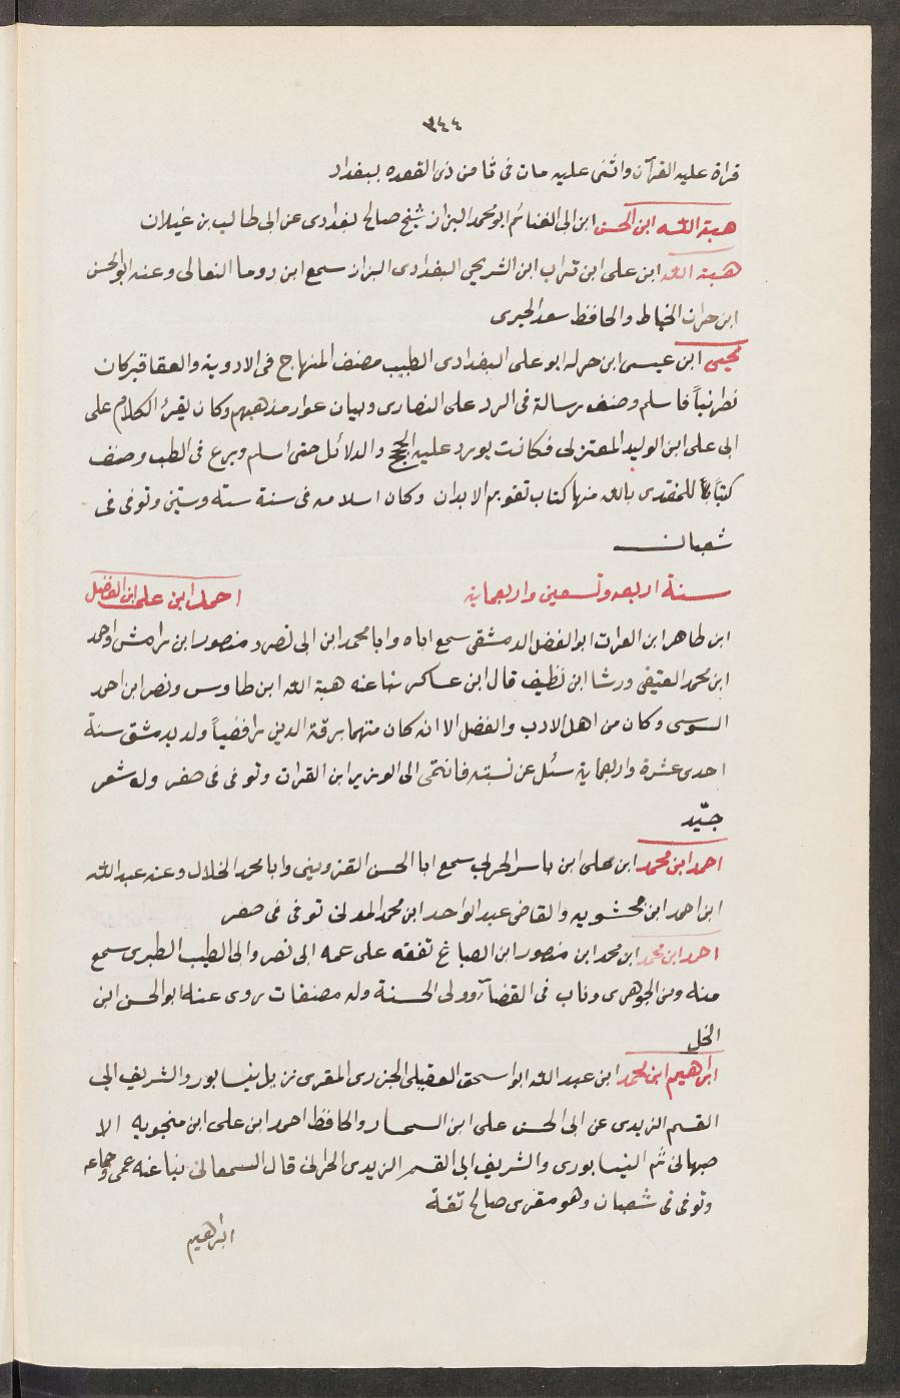 ٣٤٤
قراة عليه القرآن واثنى عليه مات فى ثامن ذى القعده ببغداد
هبة الله ابن الحسن ابن ابى الغنائم ابو محمد البزاز شيخ صالح بغدادى عن ابى طالب بن غيلان
هبة الله ابن على ابن تراب ابن الشريحى البغدادى البزاز سمع ابن دوما النعالى وعنه ابو الحسن
ابن حران الخياط والحافظ سعد الخيرى
يحيى ابن عيسى ابن جزله ابو على البغدادى الطبيب مصنف المنهاج فى الادوية والعقاقير كان
نصرانياً فاسلم وصنف رسالة فى الرد على النصارى وبيان عوار مذهبهم وكان يقرئ الكلام على
ابى على ابن الوليد المعتزلى فكانت يورد عليه الحجج والدلائل حتى اسلم وبرع فى الطب وصنف
كتباً للمقتدى بالله منها كتاب تقويم الابدان وكان اسلامه فى سنة ستة وستين وتوفى فى
شعبان
سنة اربعه وتسعين واربعماية احمد ابن على ابن الفضل
ابن طاهر ابن الفرات ابو الفضل الدمشقى سمع اباه وابا محمد ابن ابى نصر و منصور ابن رامش واحمد
ابن محمد العتيقى ورشا ابن نظيف قال ابن عساكر ثنا عنه هبة الله ابن طاوس ونصر ابن احمد
السوسى وكان من اهل الادب والفضل الا انه كان متهما برقة الدين رافضياً ولد بدمشق سنة
احدى عشرة واربعماية سئل عن نسبته فانتمى الى الوزير ابن الفرات وتوفى فى صفر وله شعر
جيّد
احمد ابن محمد ابن على ابن ياسر الحربى سمع ابا الحسن القزوينى وابا محمد الخلال وعنه عبد الله
ابن احمد ابن محشويه والقاضى عبد الواحد ابن محمد المدنى توفى فى صفر
احمد ابن محمد ابن محمد ابن منصور ابن الصباغ تفقه على عمه ابى نصر وابى الطيب الطبرى سمع
منه ومن الجوهرى وناب فى القضآء وولى الحسبة وله مصنفات روى عنه ابو الحسن ابن
الخل
ابراهيم ابن محمد ابن عبد الله ابو اسحق العقيلى الجزرى المقرى نزيل نيسابور والشريف ابى
القسم الزيدى عن ابى الحسن على ابن السمسار والحافظ احمد ابن على ابن منجويه الا
صبهانى ثم النيسابورى والشريف ابى القسم الزيدى الحرانى قال السمعانى ثنا عنه عمى وجماعه
وتوفى فى شعبان وهو مقرى صالح ثقة
ابراهيم